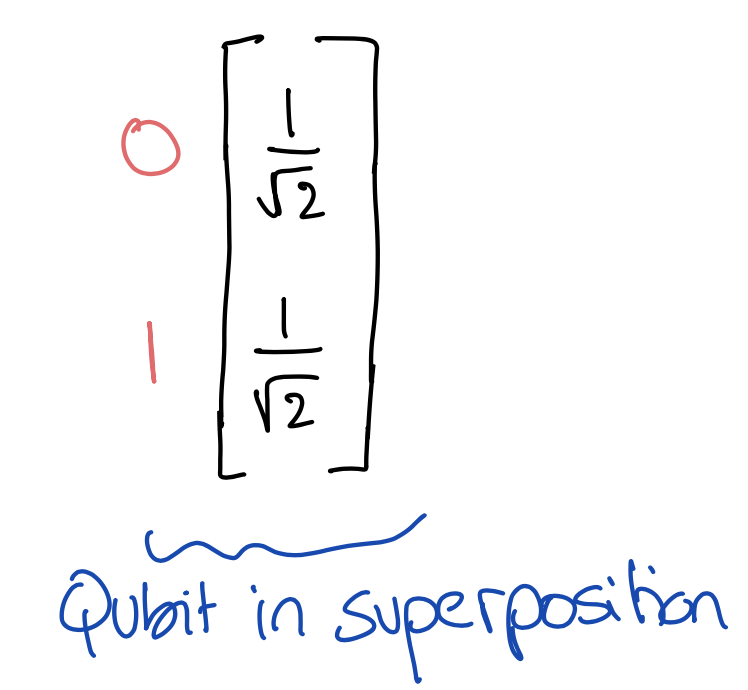 0 1/√2
1 1/√2
Qubit in superposition